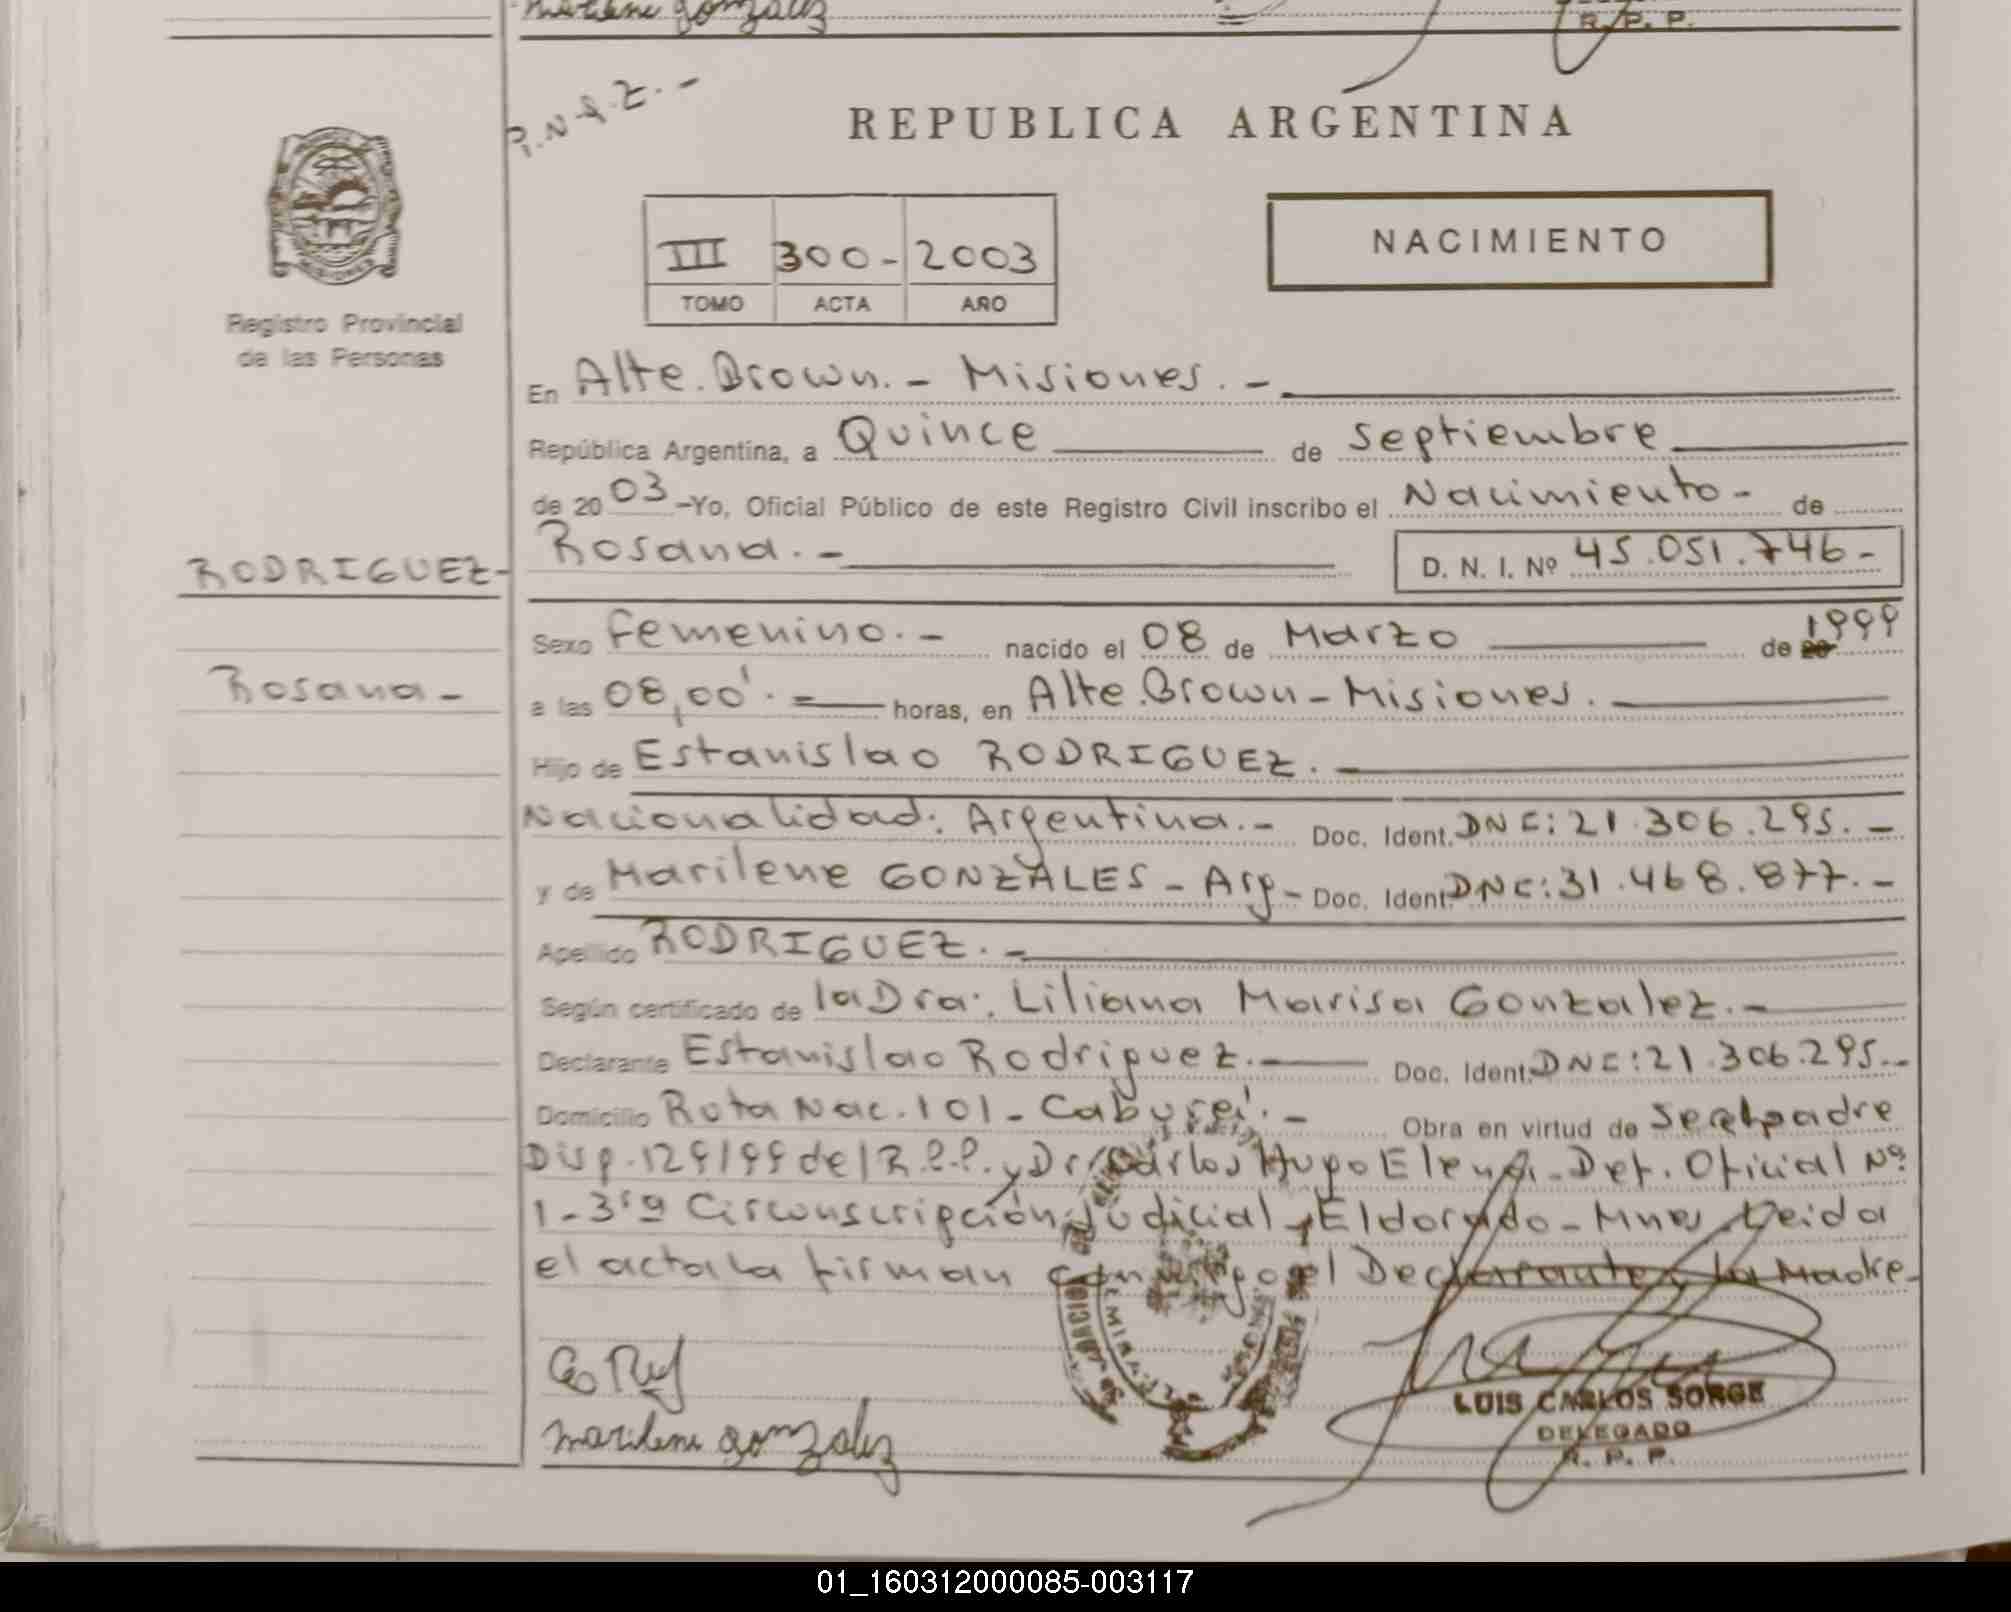 Marilene gonzalez
R. P. P.
P.N.A.Z. -
REPUBLICA ARGENTINA
NACIMIENTO
III 300- 2003
TOMO ACTA AÑO
Registro Provincial
de las Personas
MISIONES
En Alte. Brown. - Misiones. -
República Argentina, a Quince de septiembre
de 20 03 -Yo, Oficial Público de este Registro Civil inscribo el Nacimiento - de
RODRIGUEZ- Rosana. - D. N. I. Nº 45.051.746 -
Sexo femenino. - nacido el 08 de Marzo de 20 1999
Rosana - a las 08,00'. - horas, en Alte. Brown - Misiones.
Hijo de Estanislao RODRIGUEZ. -
Nacionalidad: Argentina. - Doc. Ident. DNI: 21.306.295. -
y de Marilene GONZALES - Arg - Doc. Ident. DNI: 31.468.877. -
Apellido RODRIGUEZ. -
Según certificado de la Dra. Liliana Marisa Gonzalez. -
Declarante Estanislao Rodriguez. - Doc. Ident. DNI: 21.306.295. -
Domicilio Ruta Nac. 101 - Cabureí. - Obra en virtud de Ser el padre
Disp. 129/99 del R.P.P. y Dr. Carlos Hugo - Def. Oficial Nº
1 - 3ra Circunscripción Judicial - Eldorado - Mnes Leida
el acta la firman conmigo el Declarante y la Madre -
marilene gonzalez
LUIS CARLOS SORGE
DELEGADO
R. P. P.
01_160312000085-003117